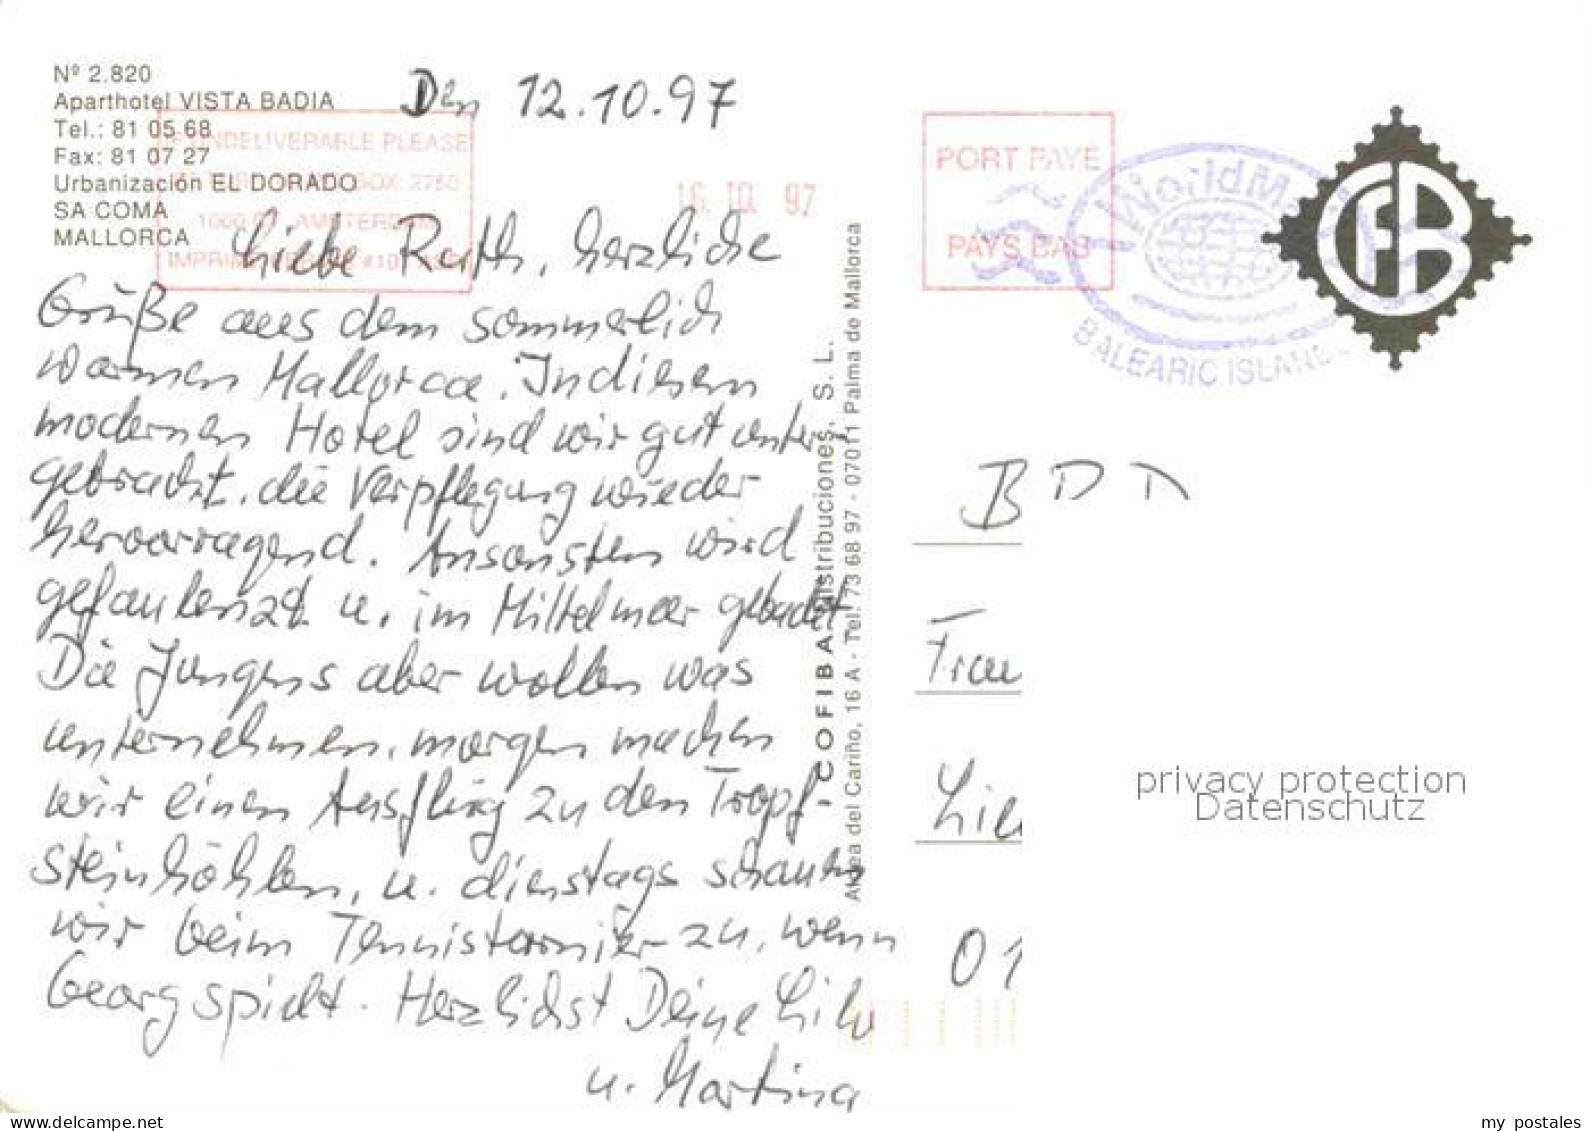 Nº 2.820
Aparthotel VISTA BADIA
Tel.: 81 05 68
Fax: 81 07 27
Urbanización EL DORADO
SA COMA
MALLORCA
IF UNDELIVERABLE PLEASE
BOX 2750
1000 AMSTERDAM
Den 12.10.97
16. 10. 97
PORT PAYE
PAYS BAS
BALEARIC ISLAND
CFB
Liebe Ruth, herzliche
Grüße aus dem sommerlich
warmen Mallorca. In diesem
modernen Hotel sind wir gut unter-
gebracht, die Verpflegung wieder
hervorragend. Ansonsten wird
gefaulenzt u. im Mittelmeer gebadet
Die Jungens aber wollen was
unternehmen, morgen machen
wir einen Ausflug zu den Tropf-
steinhöhlen, u. dienstags schauen
wir beim Tennisturnier zu, wenn
Georg spielt. Herzlichst Deine Lilo
u. Martina
COFIBA Distribuciones, S. L.
Aldea del Cariño, 16 A - Tel. 73 68 97 - 07011 Palma de Mallorca
BDD
Frau
01
privacy protection
Datenschutz
my postales